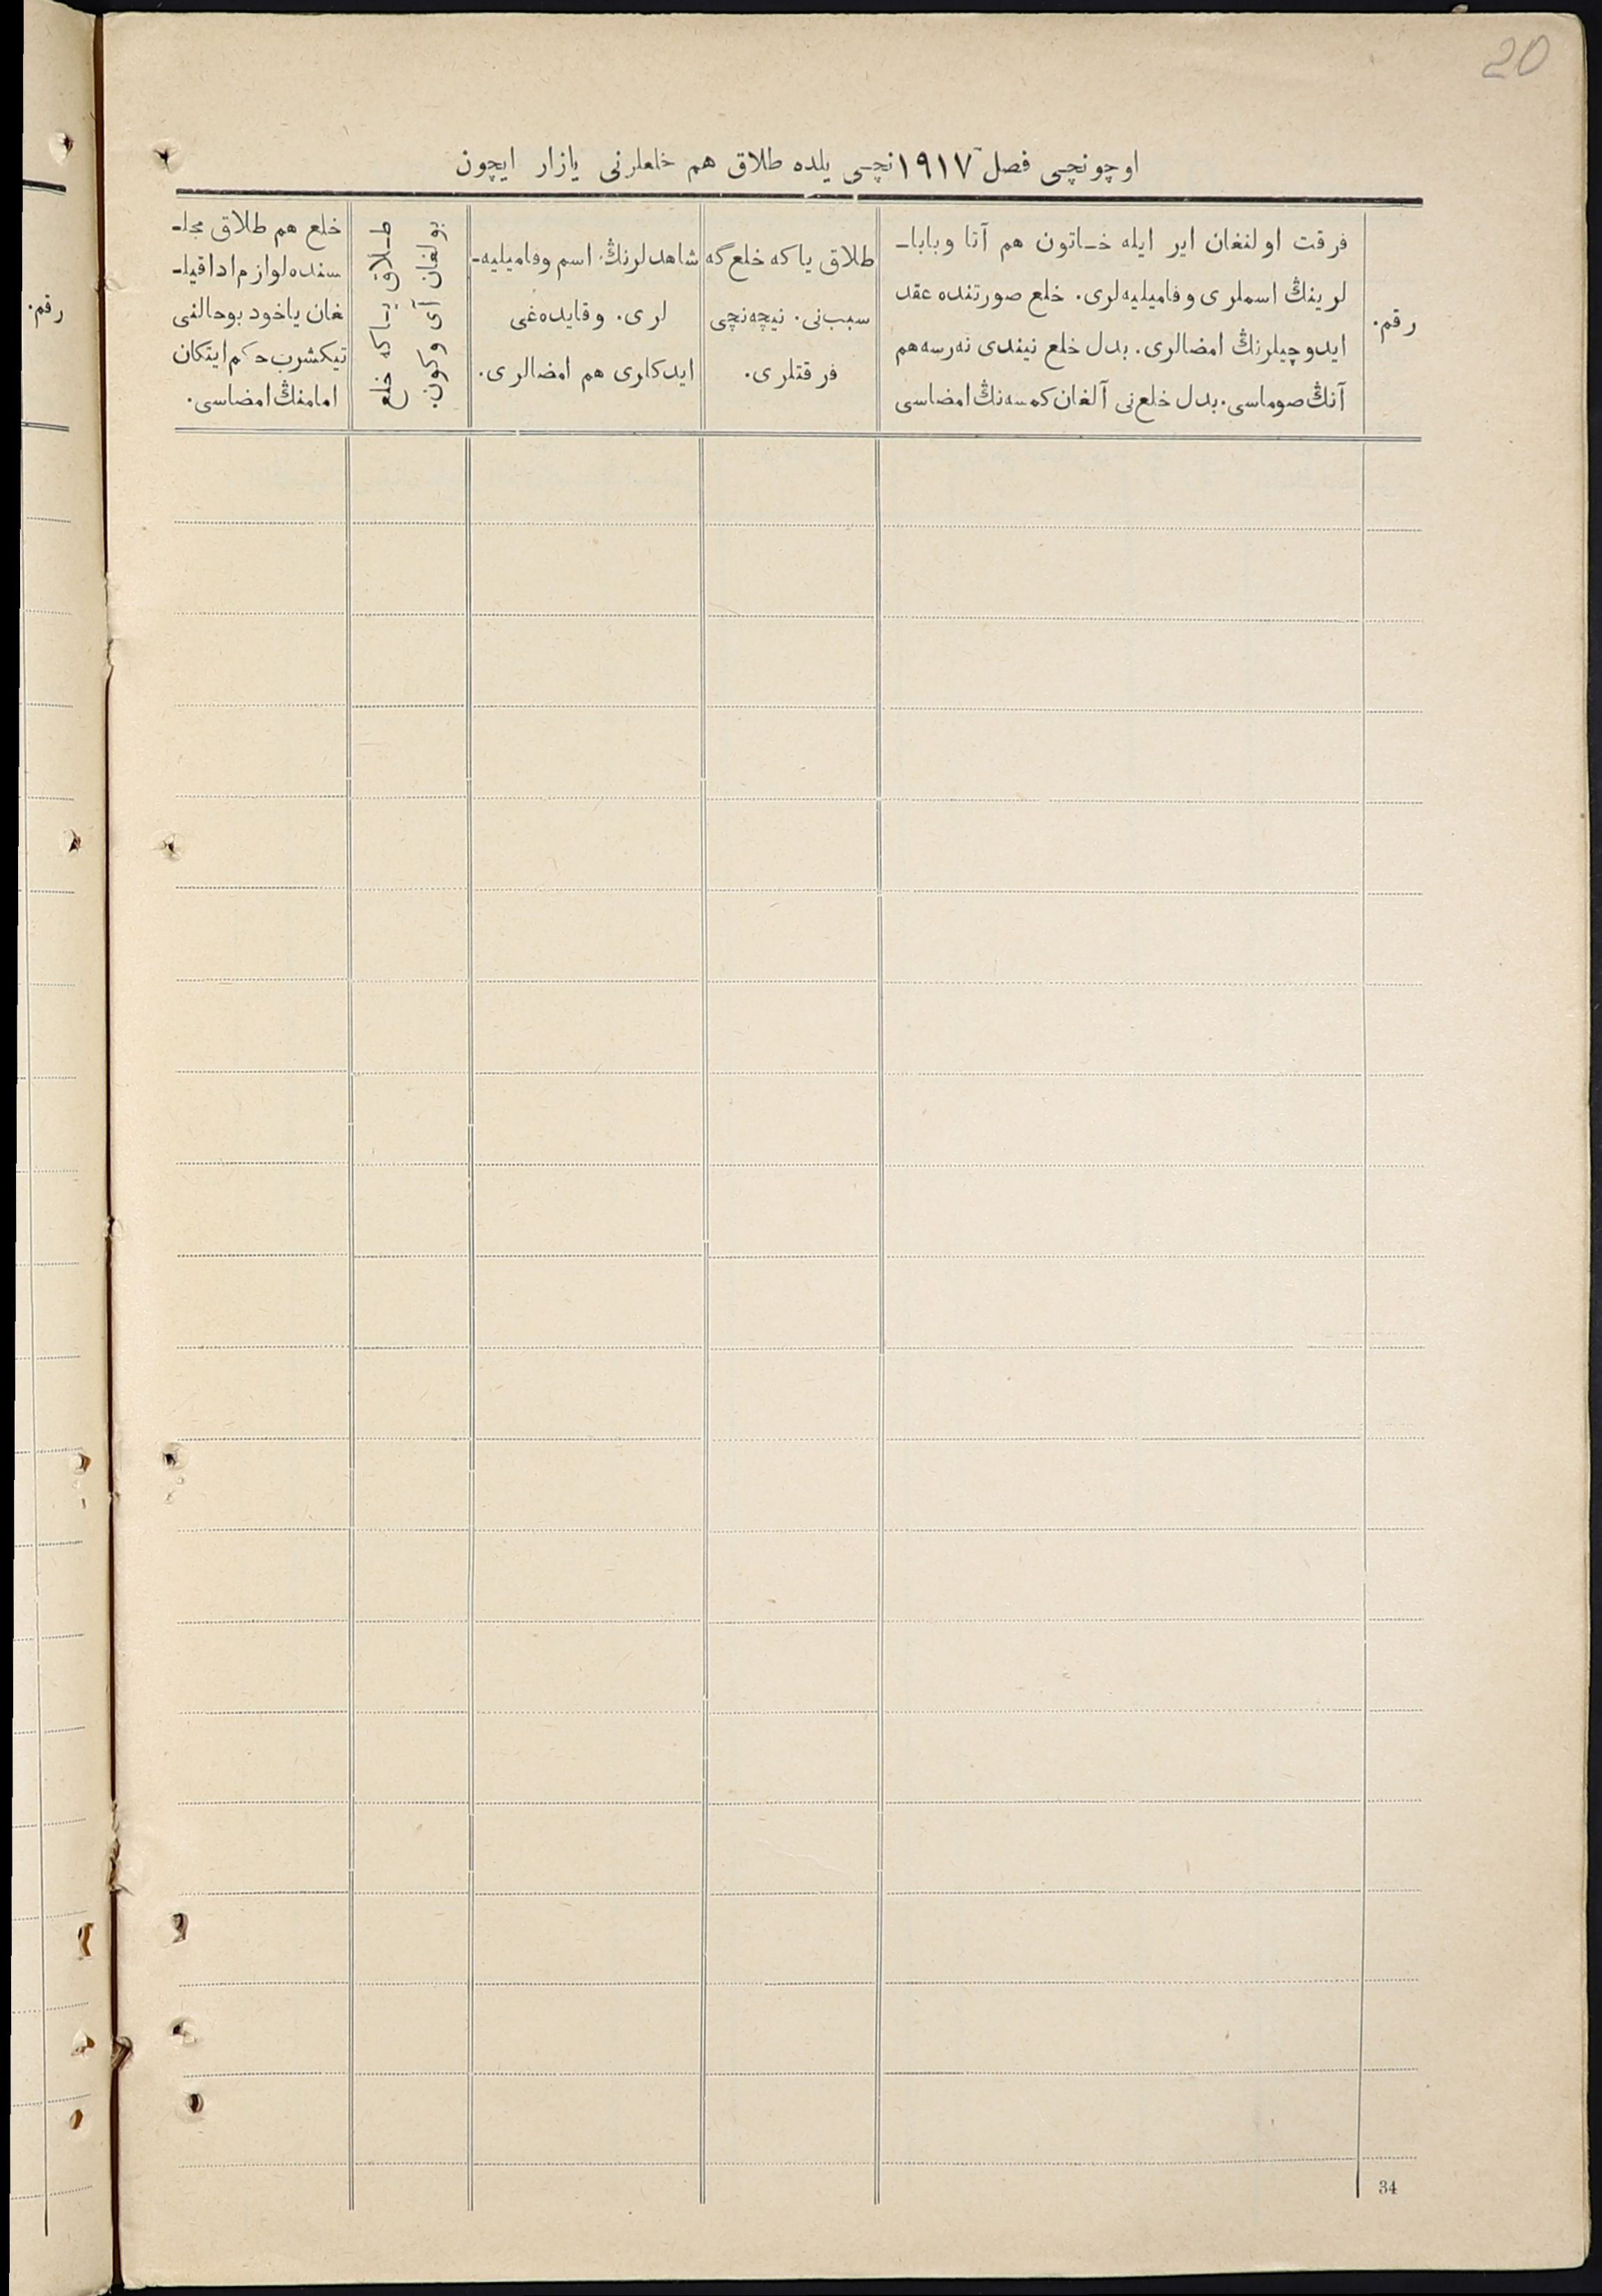 20
اوچونچی فصل ۱۹۱۷نچی یلده طلاق هم خلعلرنی یازار ایچون
رقم.
فرقت اولنغان ایر ایله خاتون هم آتا وبابا-
لرینڭ اسملری وفامیلیه‌لری. خلع صورتنده عقد
ایدوچیلرنڭ امضالری. بدل خلع نیندی نه‌رسه هم
آنڭ صوماسی. بدل خلع‌نی آلغان کمسه‌نڭ امضاسی
طلاق یا که خلع گه
سبب‌نی. نیچه‌نچی
فرقتلری.
شاهدلرنڭ اسم وفامیلیه-
لری. وقایده‌غی
ایدکلری هم امضالری.
طلاق یاکه خلع
بولغان آی وکون.
خلع هم طلاق مجلـ
سنده لوازم ادا قیلـ
غان یاخود بوحالنی
تیکشرب حکم ایتکان
امامنڭ امضاسی.
رقم.
34